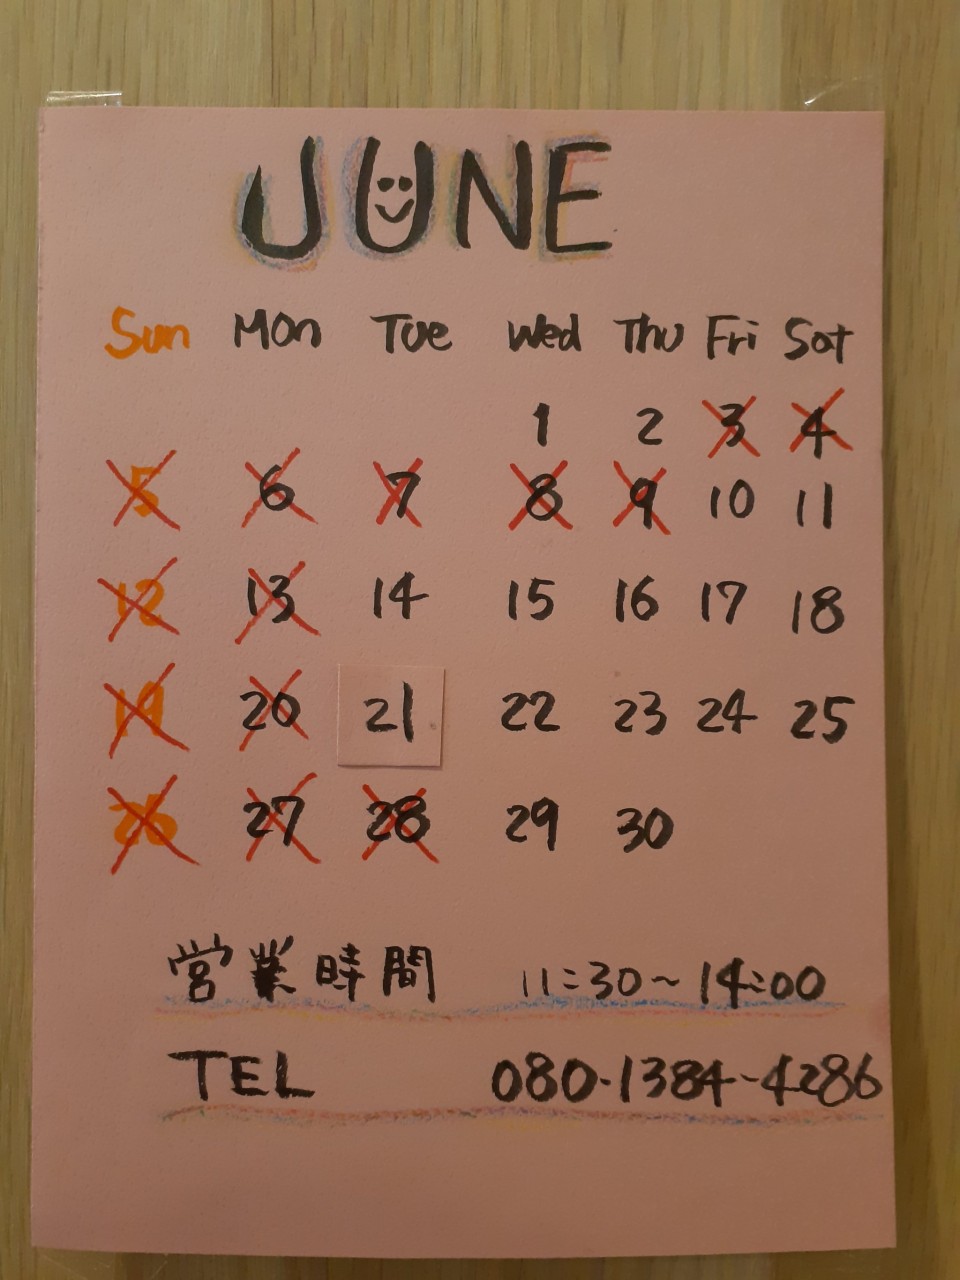 JUNE
Sun Mon Tue Wed Thu Fri Sat
1 2 3 4
5 6 7 8 9 10 11
12 13 14 15 16 17 18
19 20 21 22 23 24 25
26 27 28 29 30
営業時間 11:30~14:00
TEL 080-1384-4286